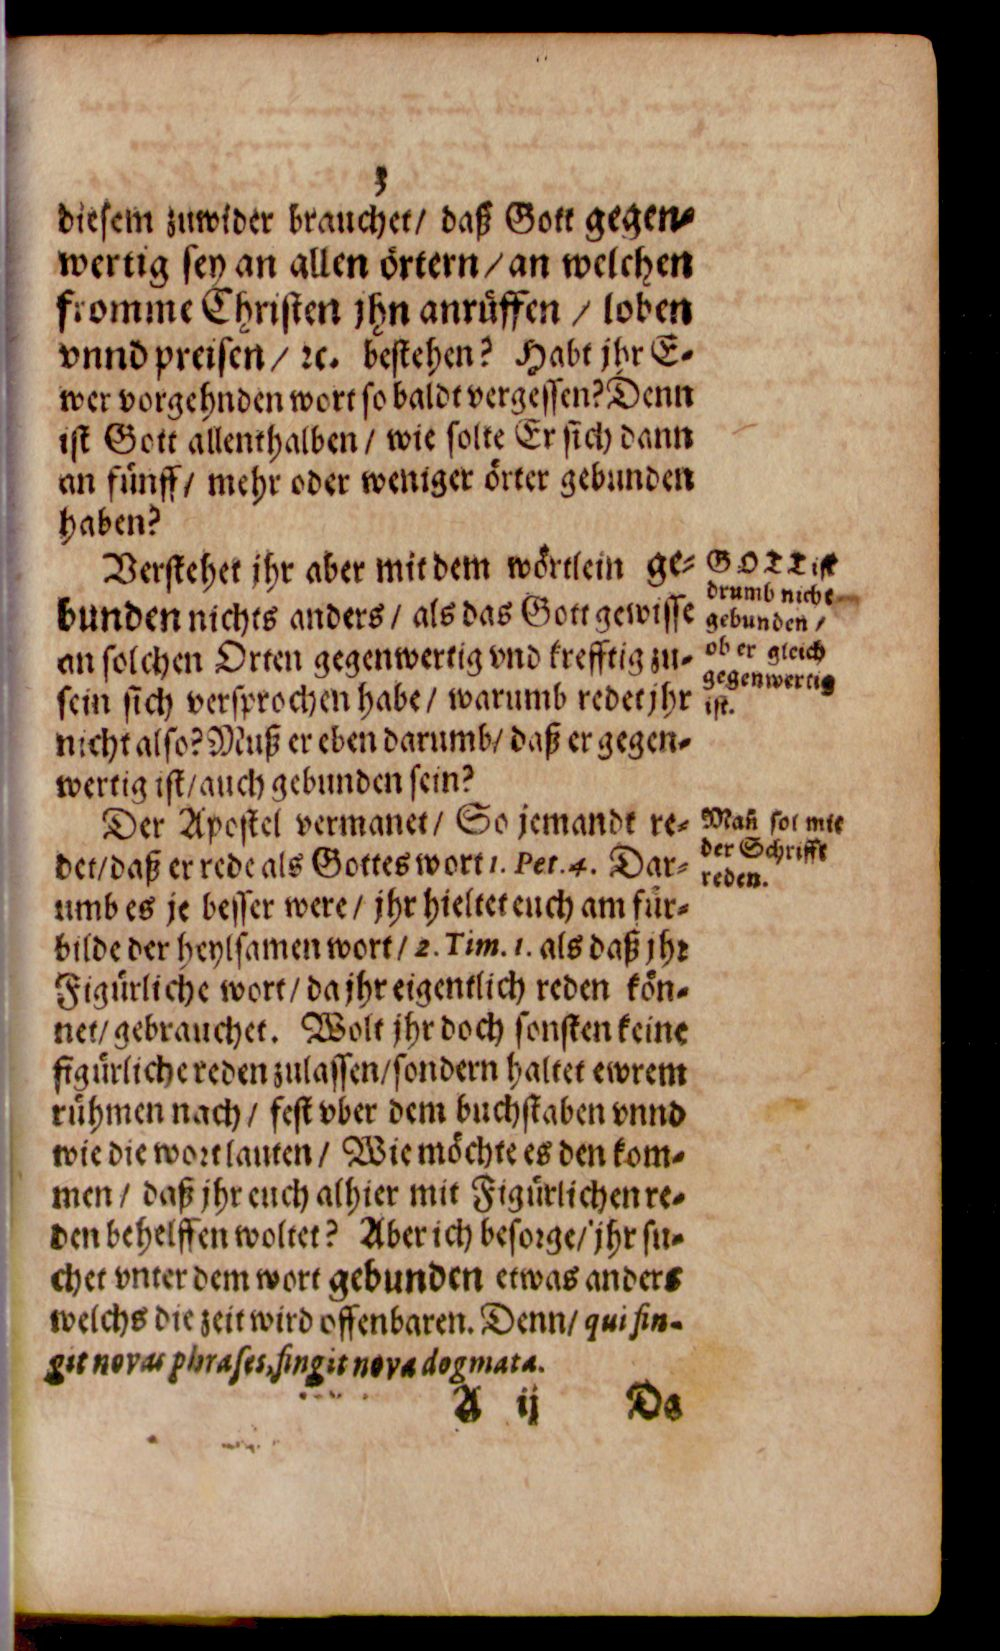 3
diesem zuwider brauchet/ daß Gott gegen-
wertig sey an allen örtern/ an welchen
fromme Christen jhn anrüffen / loben
vnnd preisen/ ꝛc. bestehen? Habt jhr E-
wer vorgehnden wort so baldt vergessen? Denn
ist Gott allenthalben/ wie solte Er sich dann
an fünff/ mehr oder weniger örter gebunden
haben?
Verstehet jhr aber mit dem wörtlein ge-
bunden nichts anders/ als das Gott gewisse
an solchen Orten gegenwertig vnd krefftig zu-
sein sich versprochen habe/ warumb redet jhr
nicht also? Muß er eben darumb/ daß er gegen-
wertig ist/ auch gebunden sein?
GOTT ist
drumb nicht
gebunden/
ob er gleich
gegenwertig
ist.
Der Apostel vermanet/ So jemandt re-
det/ daß er rede als Gottes wort 1. Pet. 4. Dar-
umb es je besser were/ jhr hieltet euch am für-
bilde der heylsamen wort/ 2. Tim. 1. als daß jhr
Figürliche wort/ da jhr eigentlich reden kön-
net/ gebrauchet. Wolt jhr doch sonsten keine
figürliche reden zulassen/ sondern haltet ewrem
rühmen nach/ fest vber dem buchstaben vnnd
wie die wort lauten/ Wie möchte es den kom-
men/ daß jhr euch alhier mit Figürlichen re-
den behelffen woltet? Aber ich besorge/ jhr su-
chet vnter dem wort gebunden etwas anders
welchs die zeit wird offenbaren. Denn/ qui fin-
git novas phrases, fingit nova dogmata.
Mañ sol mit
der Schrifft
reden.
A ij Da